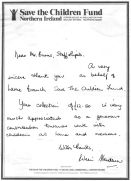 Save the Children Fund
Northern Ireland
Dear Mr. Evans, Staff & Pupils,
A very
sincere thank you on behalf of
Larne Branch Save The Children Fund.
Your collection of £12.50 is very
much appreciated as a generous
contribution towards work with
children at home and overseas.
With thanks,